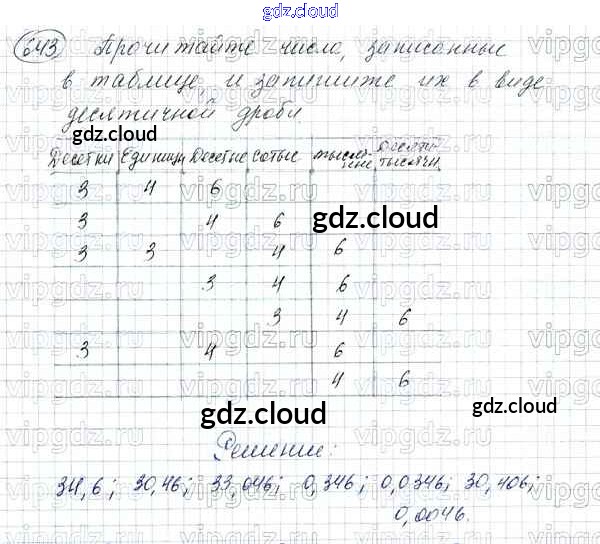 gdz.cloud
643 Прочитайте числа, записанные
в таблице, и запишите их в виде
десятичной дроби
gdz.cloud
Десятки Единицы Десятые сотые тысячные Десятитысячн.
3 4 6
3 4 6 gdz.cloud
3 3 4 6
3 4 6
3 4 6
3 4 6
4 6
gdz.cloud gdz.cloud
Решение:
34,6; 30,46; 33,046; 0,346; 0,0346; 30,406;
0,0046.